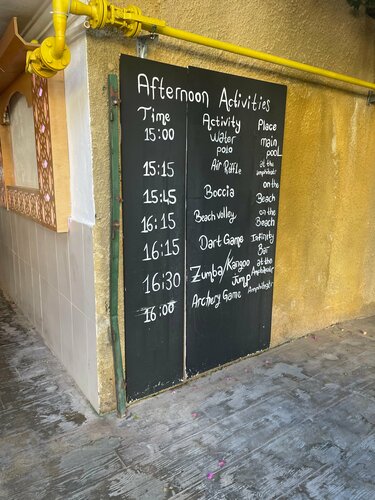 Afternoon Activities
Time Activity Place
15:00 Water polo main pool
15:15 Air Riffle at the amphitheatr
15:45 Boccia on the Beach
16:15 Beach volley on the Beach
16:15 Dart Game Infinity Bar
16:30 Zumba/Kangoo Jump at the Amphitheatr
16:00 Archery Game Amphitheatr